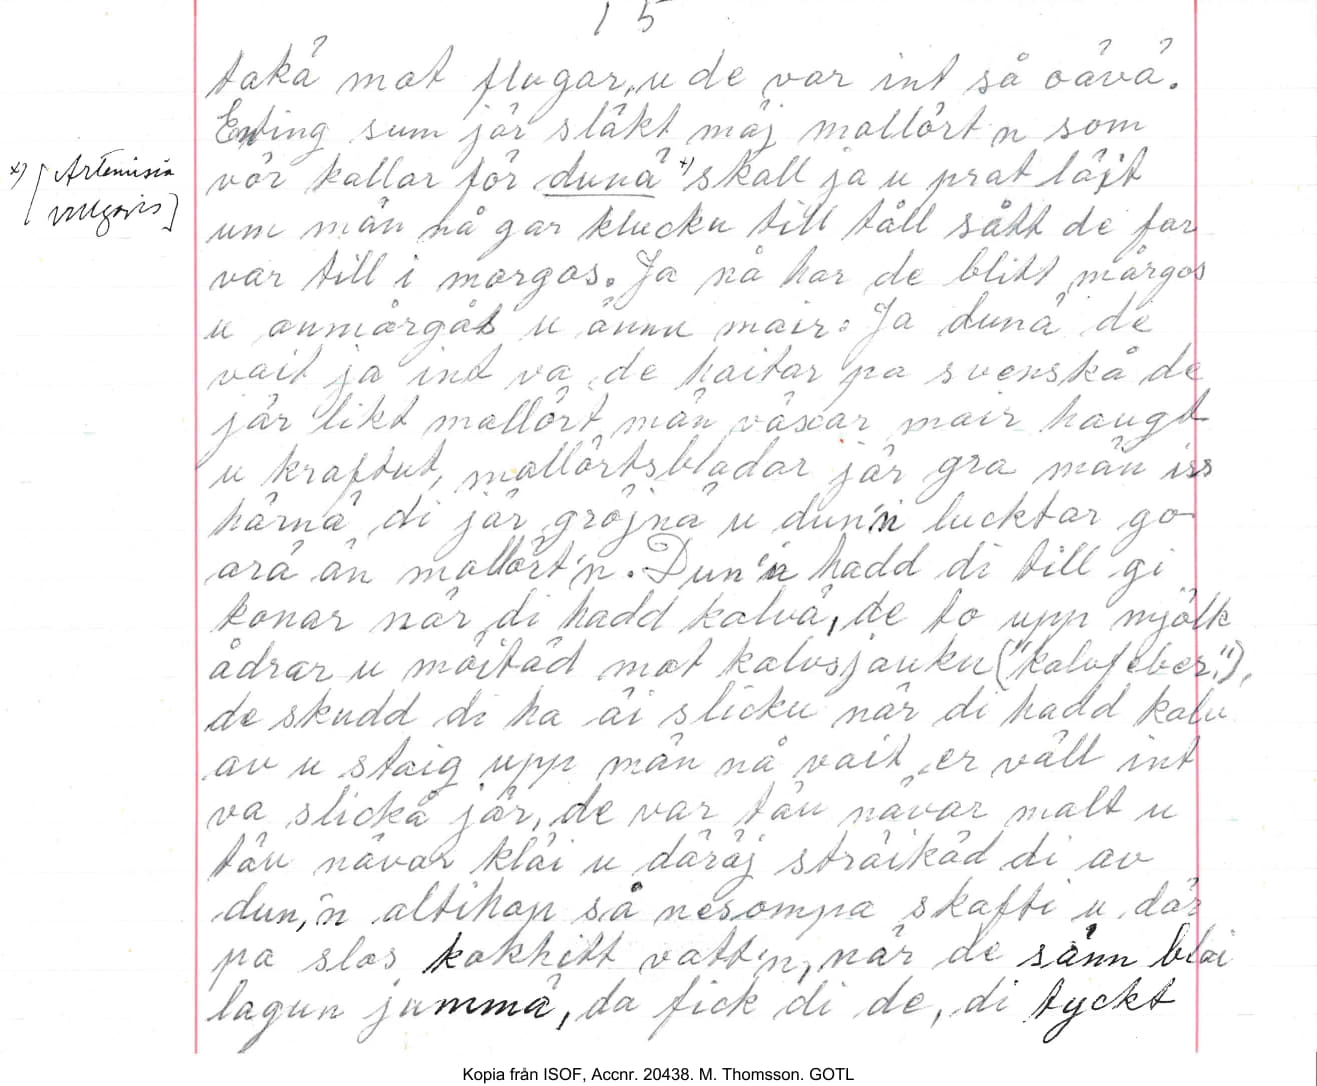 15
takä mot flugar, u de var int så oävä.
Enting sum jär släkt mäj mallört'n som
vör kallar för dunä x) skall ja u prat läjt
um män nå gar klucku till tåll sått de far
var till i morgos. Ja nå har de blitt mårgos
u anmårgås u ännu mair. Ja dunä de
vait ja int va de haitar pa svenskå de
jär likt mallört män växar mair haugt
u kraftut, mallörtsbladar jär gra män iss
härnä di jär gröjna u dun'n lucktar go
arä än mallört'n. Dun'n hadd di till gi
konar när di hadd kalvä, de to upp mjölk
ådrar u möitäd mot kalvsjauku ("kalvfeber"),
de skudd di ha äi slicku när di hadd kalv
av u staig upp män nå vait er väll int
va slickå jär, de var täu nävar malt u
täu nävar kläi u däräj sträikäd di av
dun,n altihop så nesompa skafti u där
pa slos kokhitt vatt'n, när de sänn blai
lagun jummä, da fick di de, di tyckt
x) [Artemisia
vulgaris]
Kopia från ISOF, Accnr. 20438. M. Thomsson. GOTL